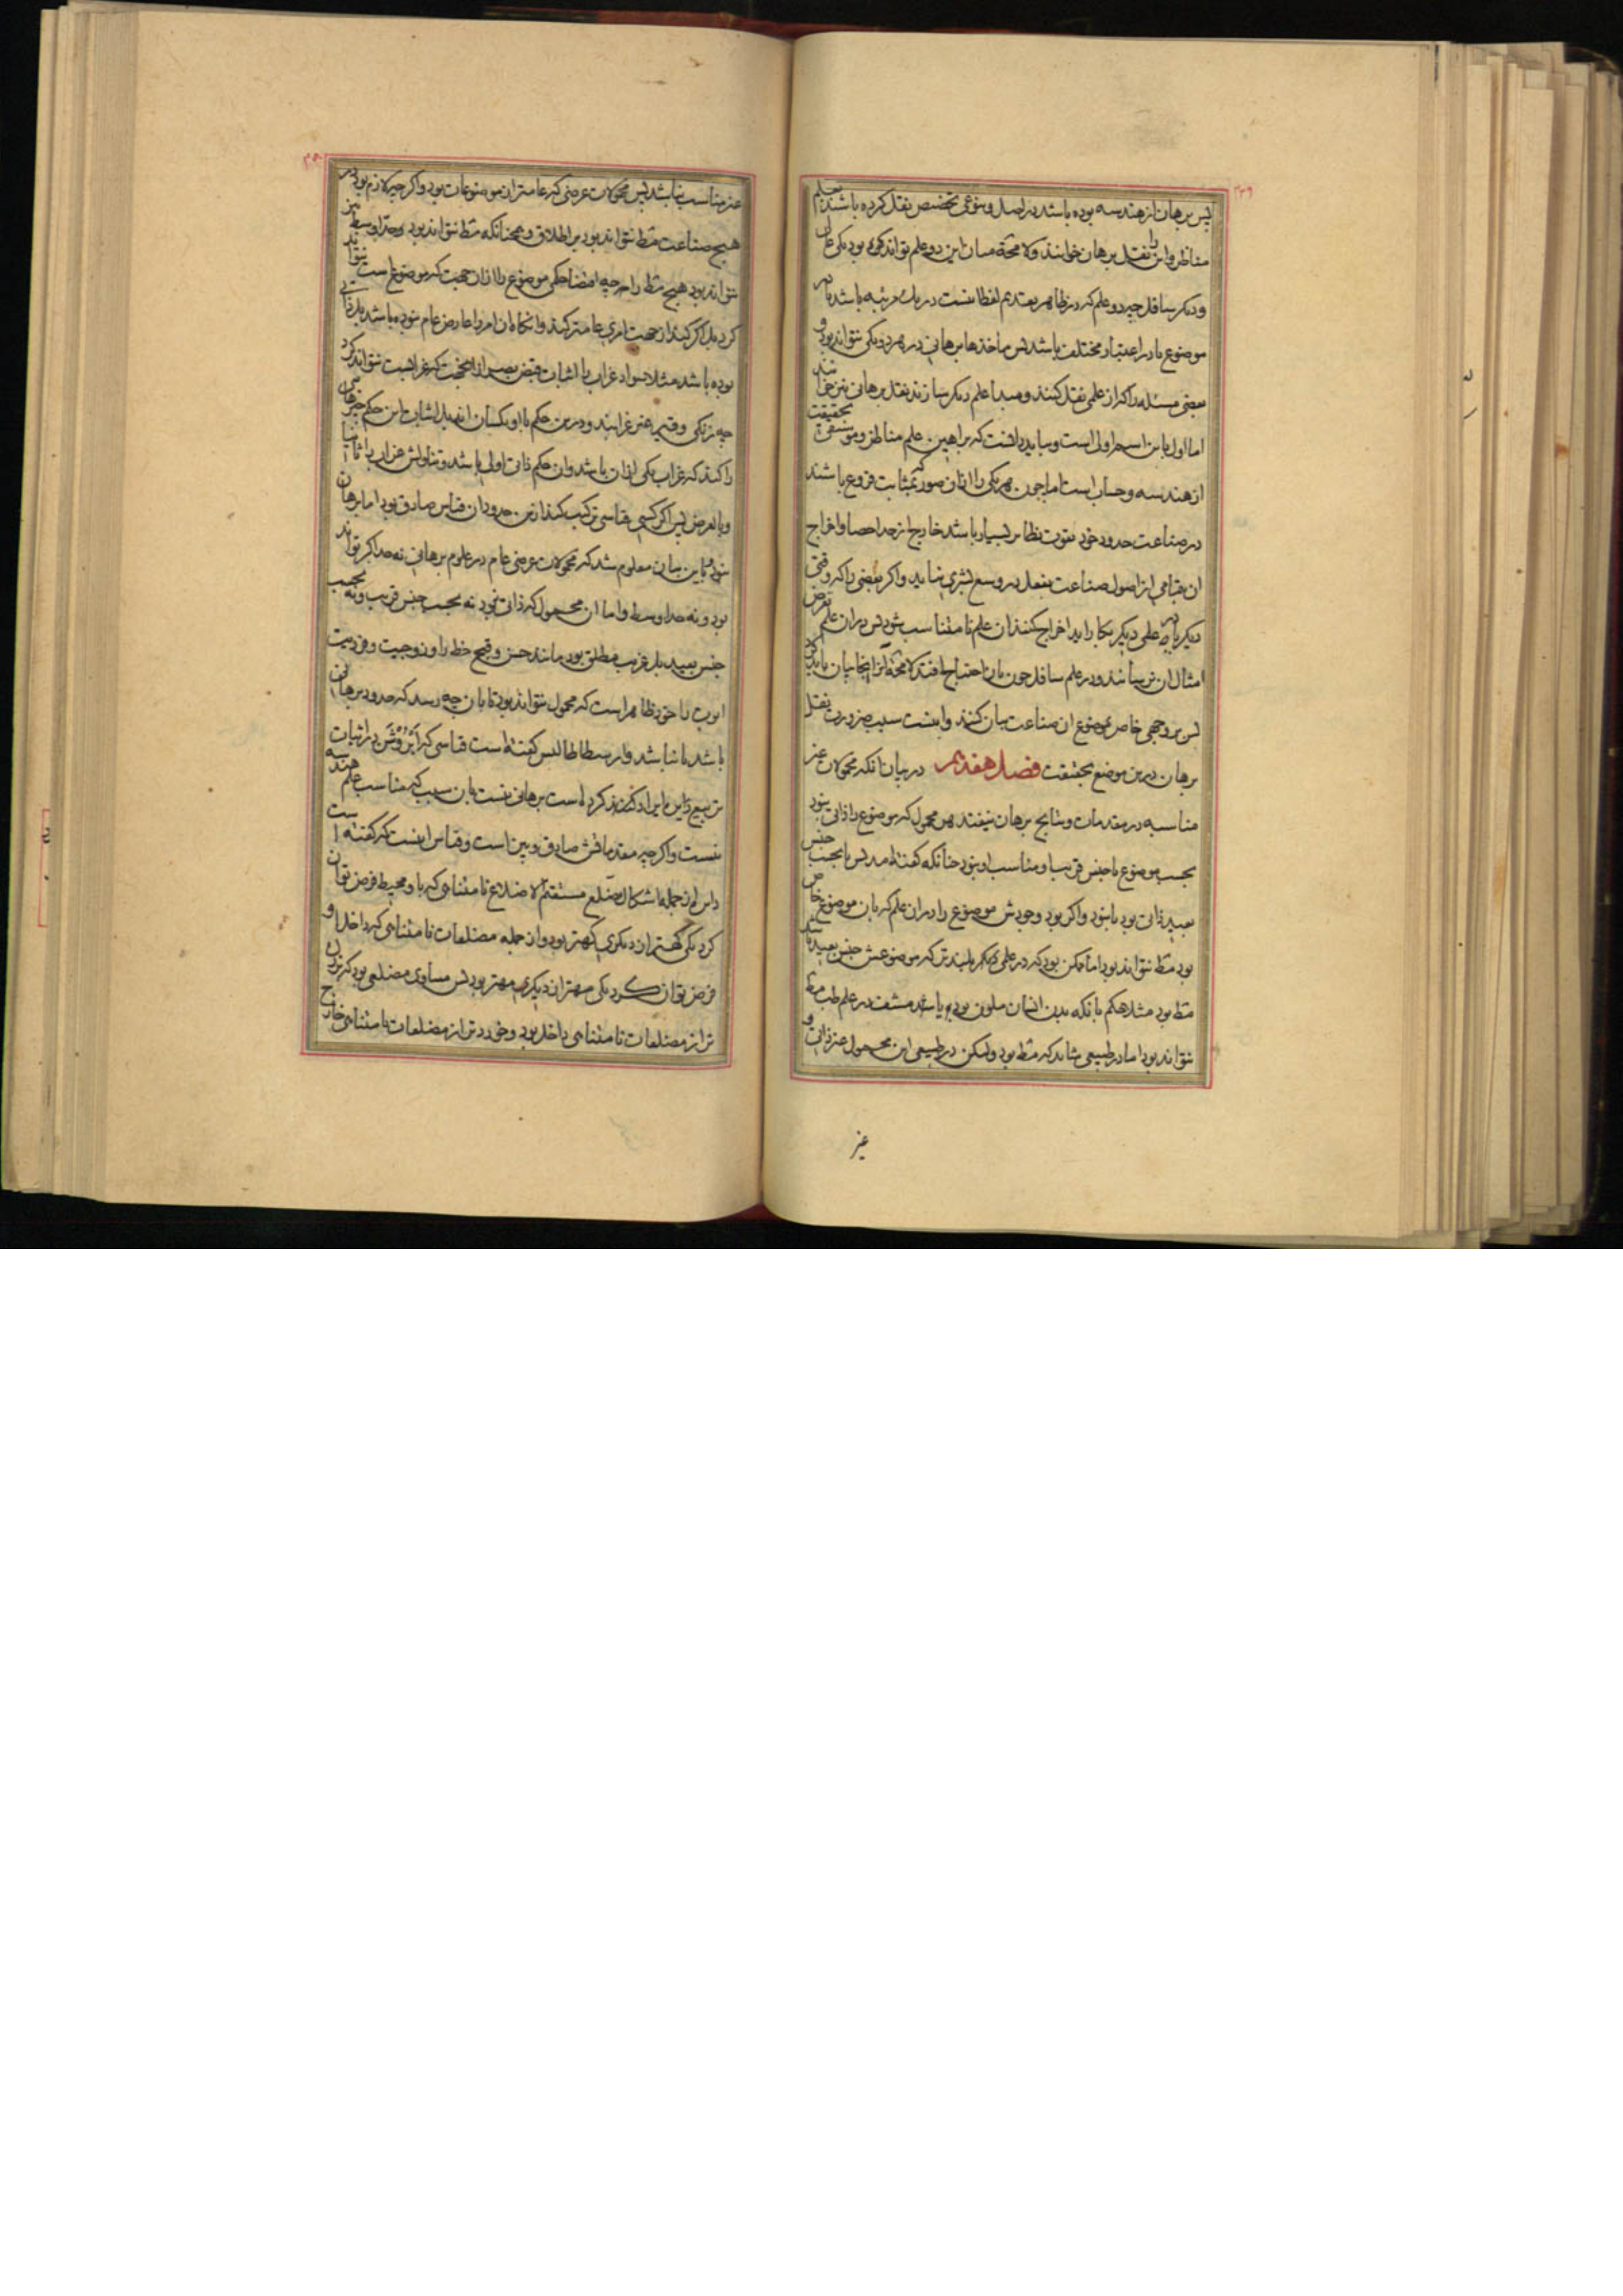 ۳۴۹
پس برهان از هندسه بوده باشد در اصل و بنوعی تخصیص نقل کرده باشند بعلم
مناظر و این را نقل برهان خوانند و لا محالة میان این دو علم تواند که بود یکی عالی
و دیگر سافل چه دو علم که در ظاهر بعدیم لفظا نیست در یک مرتبه باشد یا در
موضوع یا در اعتبار مختلف باشد پس ماخذها برهانی در هر دو یکی نتواند بود و
بعضی مسئله را که از علمی نقل کنند و مبدا علم دیگر سازند نقل برهانی نیز خوانند
اما اول باین اسم اولی است و بباید دانست که براهین علم مناظر و موسیقی بحقیقت
از هندسه و حساب است اما چون هر یکی را از آن صور بمثابت فروع باشند
در صناعت حدود خود بقوت نظایر بسیار باشد خارج از حد احصا و اخراج
ان بتمامی از اصول صناعت بفعل در وسع بشری نیاید و اگر بعضی را که وقتی
دیگر یا در علمی دیگر بکار آید اخراج کنند ان علم نامتناسب شود پس در ان علم تعرض
امثال ان نرسانند و در علم سافل چون بان احتیاج افتد لا محالة از اینجا بیان باید کرد
پس بر وجهی خاص بموضوع ان صناعت بیان کنند و اینست سبب ضرورت نقل
برهان درین موضع بحقیقت فصل هفدهم در بیان انکه محمولات غیر
مناسبه در مقدمات و نتایج برهان نیفتد هر محمول که موضوع را ذاتی نبود
بحسب موضوع یا جنس قریب او مناسب او نبود چنانکه گفته آمد پس یا بحسب جنس
بعید ذاتی بود یا نبود و اگر بود وجودش موضوع را در ان علم که بان موضوع خاص
بود مط نتواند بود اما ممکن بود که در علمی دیگر بلندتر که موضوعش جنس بعید باشد
مط بود مثلا حکم بانکه بدن انسان ملون بود یا شد مشف در علم طب مط
نتواند بود اما در طبیعی شاید که مط بود و لیکن در طبیعی این محمول غیر ذاتی و
غیر
۳۵۰
غیر مناسب نباشد پس محمولات عرضی که عامتر از موضوعات بود و اگر چه لازم بود در
هیچ صناعت مط نتواند بود بر اطلاق و همچنانکه مط نتواند بود حد اوسط نیز
نتواند بود هیچ مط را هر چه اقتضا حکمی موضوع را از ان جهت که موضوع است نتواند
کرد بل اگر کند از جهت امری عامتر کند و انگاه ان امر را عارض عام نبوده باشد بل ذاتی
بوده باشد مثلا سواد غراب را اثبات قبض بصر از ان جهت که غرابست نتواند کرد
چه زنگی و قیر غیر غرابند و درین حکم با او یکسان
را کند که غراب یکی از ان باشد و ان حکم ذاتی اولی باشد و تناولش غراب را ثانیا
و بالعرض پس اگر کسی قیاسی ترکیب کند ازین حدود ان قیاس صادق بود اما برهان
نبود و باین بیان معلوم شد که محمولات عرضی عام در علوم برهانی نه حد اکبر تواند
بود و نه حد اوسط و اما ان محمول که ذاتی نبود نه بحسب جنس قریب و نه بحسب
جنس بعید بل غریب مطلق بود مانند حسن و قبح خط را و زوجیت و فردیت
ابوت را خود ظاهر است که محمول نتواند بود تا بان چه رسد که حدود برهانی
باشد یا نباشد و ارسطاطالیس گفته است قیاسی که اَبْرُوْسَن در اثبات
تربیع دایره ایراد کرده است برهانی نیست بان سبب که مناسب علم هندسه
نیست و اگر چه مقدماتش صادق و بین است و قیاس اینست که گفته است
دایره از جمله اشکال مضلع مستقیم الاضلاع نامتناهی که باو محیط فرض توان
کرد یکی کهتر ان دیگری کهتر بود و ان جمله مضلعات نامتناهی که داخل او
فرض توان کرد یکی مهتر ان دیگری مهتر بود پس مساوی مضلعی بود که بزرگ
تر از مضلعات نامتناهی داخل بود و خردتر از مضلعات نامتناهی خارج